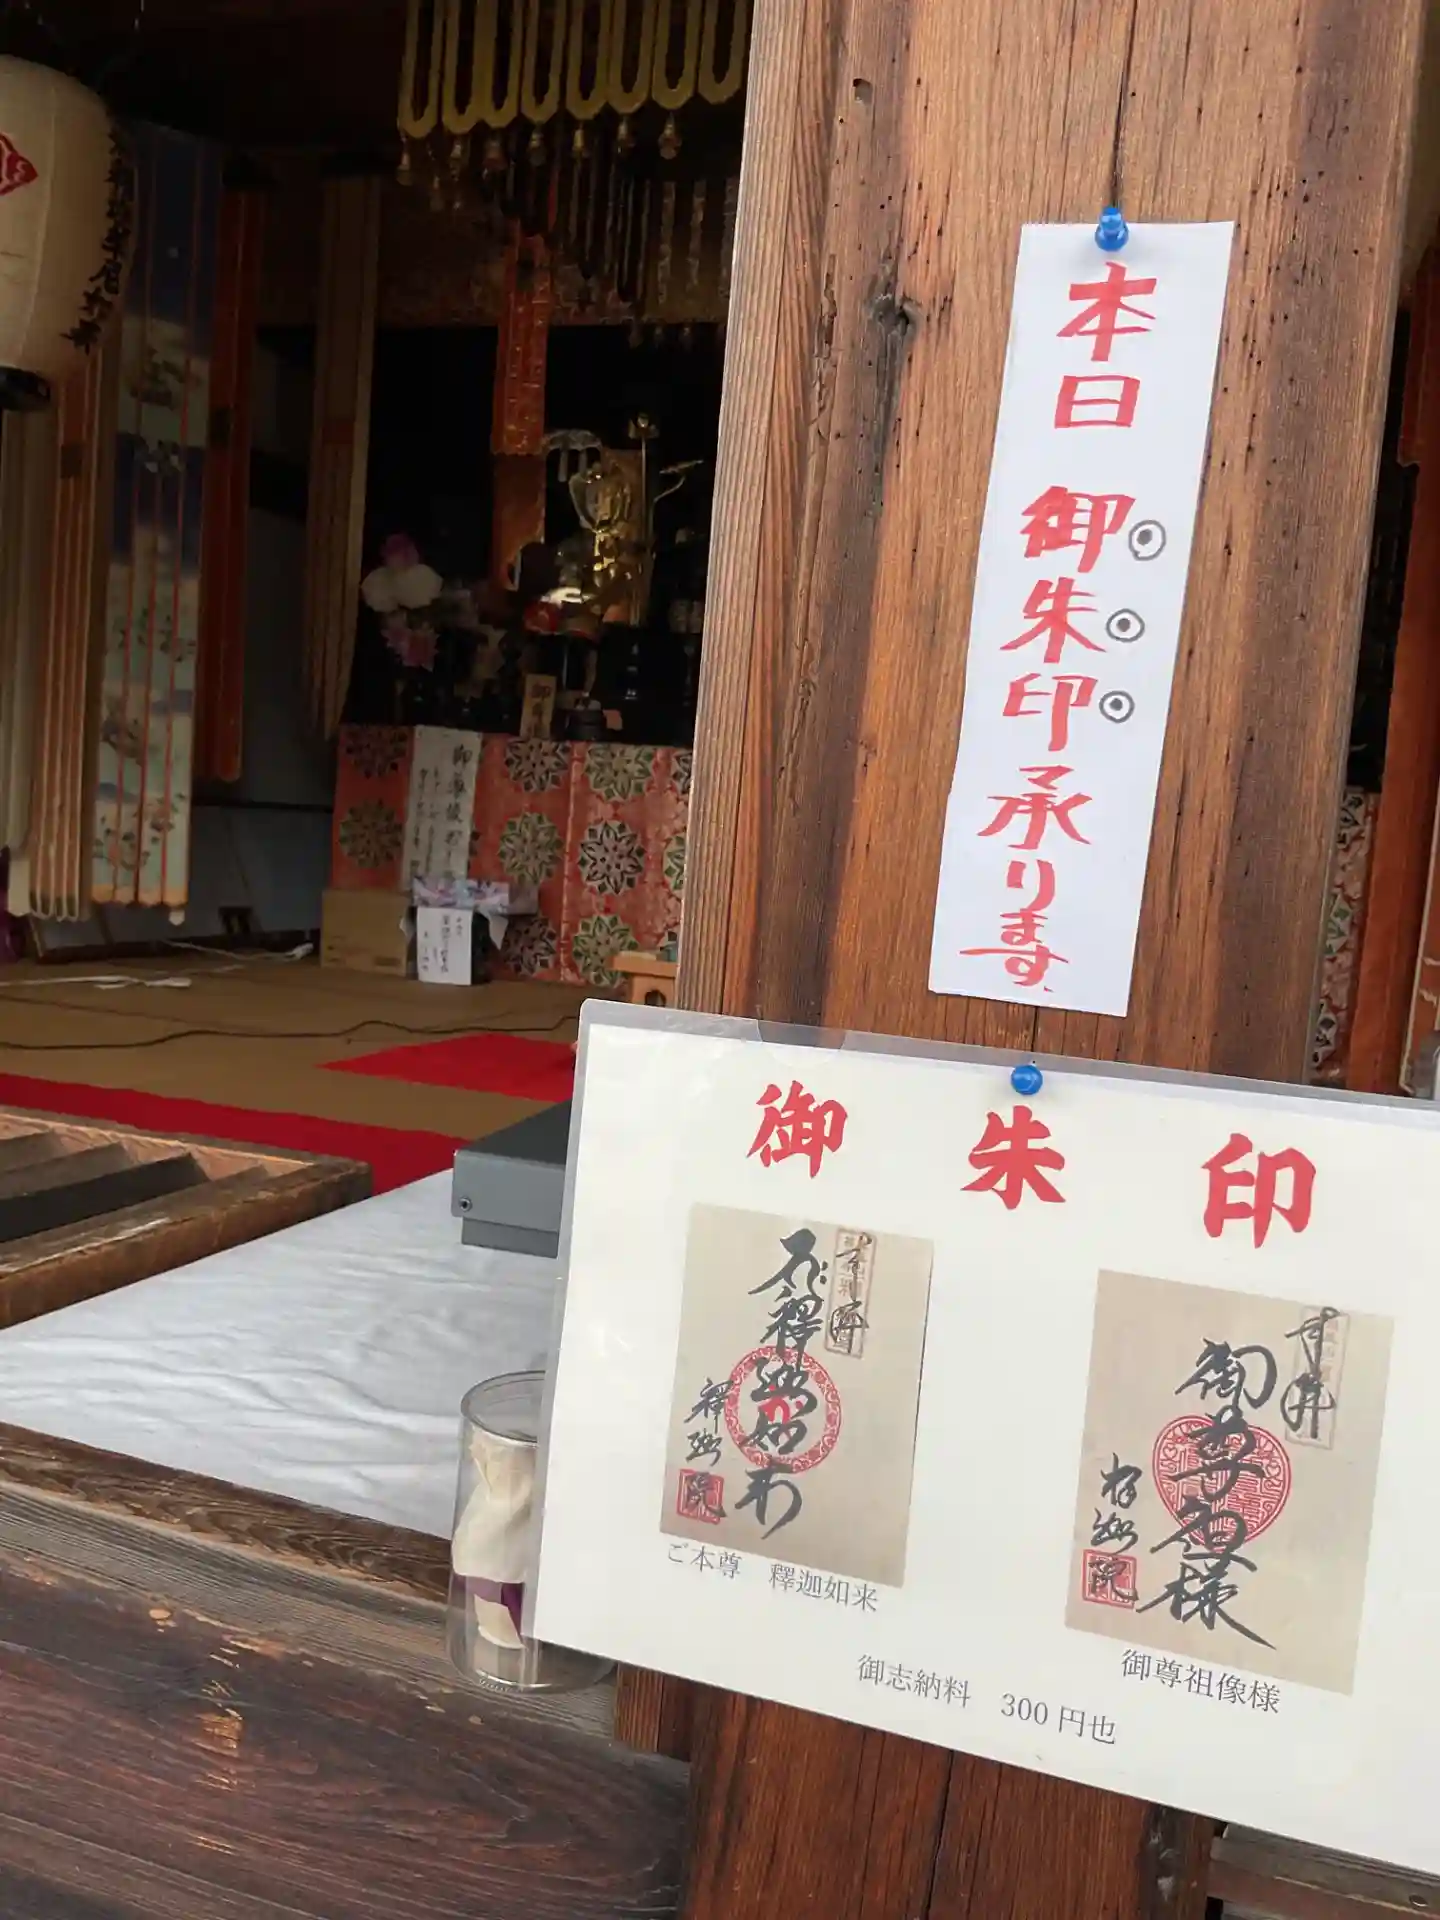 本日 御朱印承ります
御朱印
奉拝
釋迦如来
釋迦院
奉拝
御尊像様
釋迦院
ご本尊 釋迦如来
御尊祖像様
御志納料 300円也